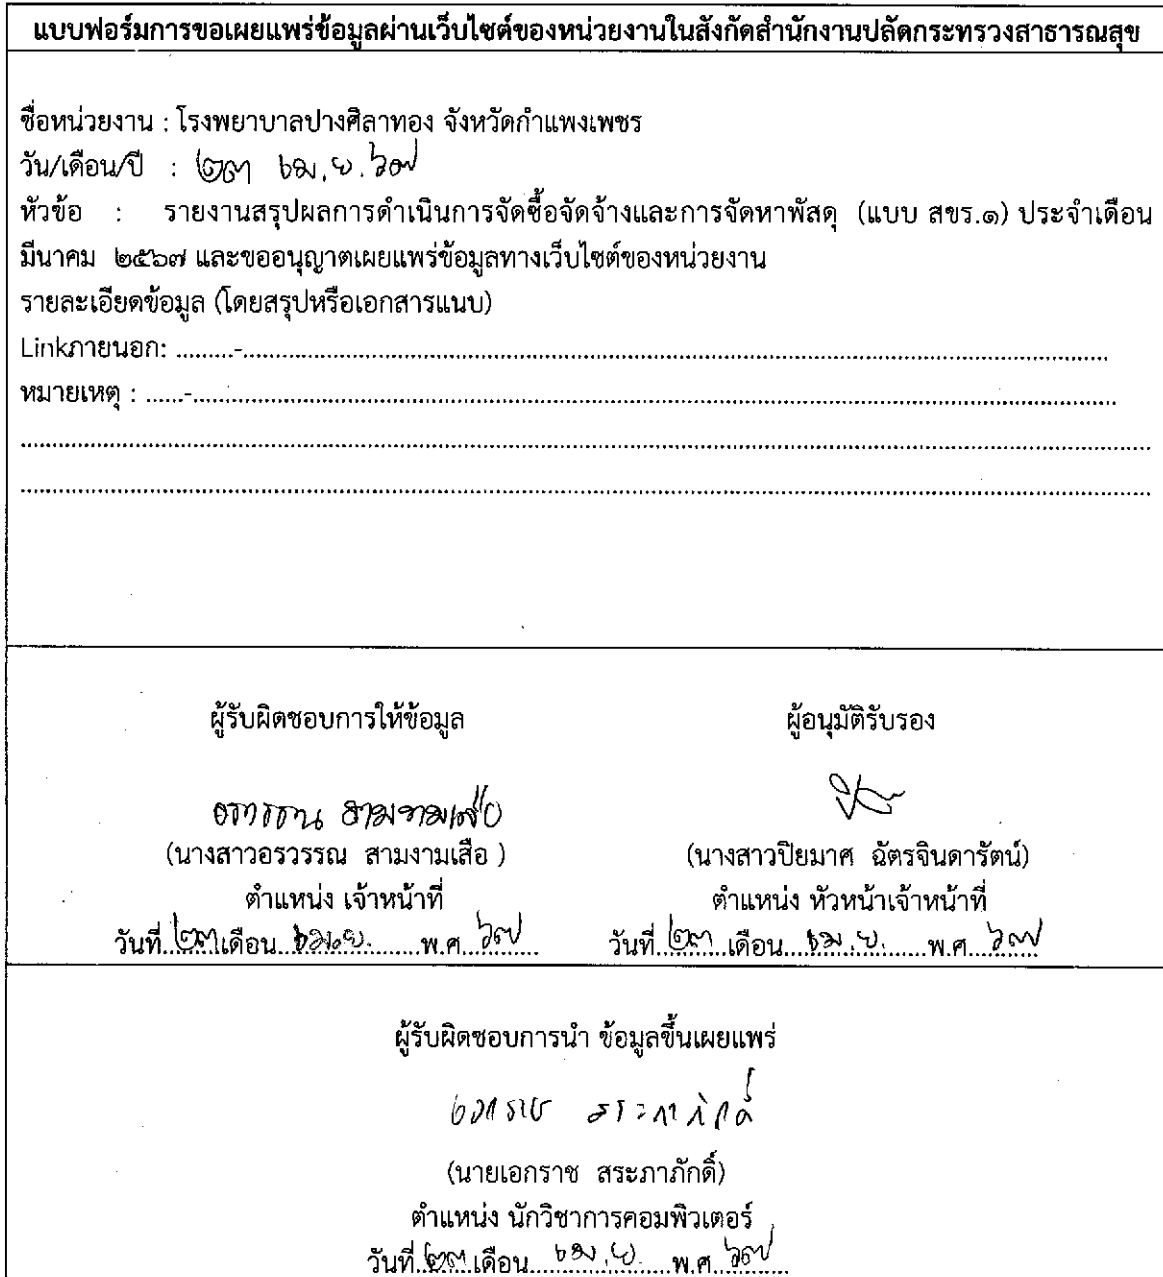 แบบฟอร์มการขอเผยแพร่ข้อมูลผ่านเว็บไซต์ของหน่วยงานในสังกัดสำนักงานปลัดกระทรวงสาธารณสุข
ชื่อหน่วยงาน : โรงพยาบาลปางศิลาทอง จังหวัดกำแพงเพชร
วัน/เดือน/ปี : ๒๓ เม.ย. ๖๗
หัวข้อ : รายงานสรุปผลการดำเนินการจัดซื้อจัดจ้างและการจัดหาพัสดุ (แบบ สขร.๑) ประจำเดือน
มีนาคม ๒๕๖๗ และขออนุญาตเผยแพร่ข้อมูลทางเว็บไซต์ของหน่วยงาน
รายละเอียดข้อมูล (โดยสรุปหรือเอกสารแนบ)
Linkภายนอก: .........-.........
หมายเหตุ : ......-.........
ผู้รับผิดชอบการให้ข้อมูล ผู้อนุมัติรับรอง
อรวรรณ สามงามเสือ
(นางสาวอรวรรณ สามงามเสือ ) (นางสาวปิยมาศ ฉัตรจินดารัตน์)
ตำแหน่ง เจ้าหน้าที่ ตำแหน่ง หัวหน้าเจ้าหน้าที่
วันที่..๒๓..เดือน...เม.ย.......พ.ศ...๖๗..... วันที่..๒๓...เดือน...เม.ย.......พ.ศ...๖๗.....
ผู้รับผิดชอบการนำ ข้อมูลขึ้นเผยแพร่
เอกราช สระภาภักดิ์
(นายเอกราช สระภาภักดิ์)
ตำแหน่ง นักวิชาการคอมพิวเตอร์
วันที่..๒๓..เดือน...เม.ย.......พ.ศ...๖๗.....